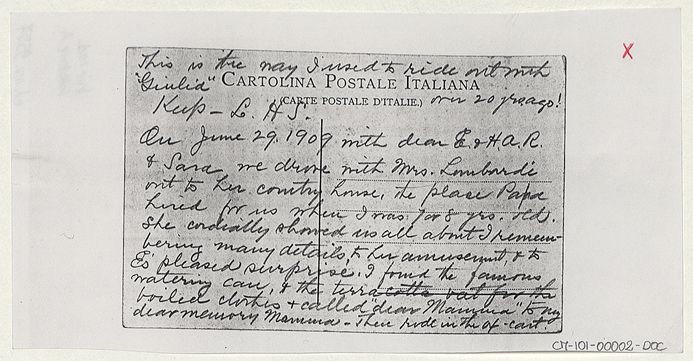 This is the way I used to ride out with
"Giulia" CARTOLINA POSTALE ITALIANA
(CARTE POSTALE D'ITALIE.) over 20 yrs ago!
Keep - L. H S.
On June 29. 1909 with dear E & H A. R.
& Sara we drove with Mrs. Lombardi
out to her country house, the place Papa
hired for us when I was 7 or 8 yrs. old.
She cordially showed us all about I remem-
bering many details, to her amusement, & to
E's pleased surprise. I found the famous
watering can, & the terra cotta vat for the
boiled clothes & called "dear Mamma" to my
dear memory Mamma - Then ride in the ox-cart
CM-101-00002-DOC